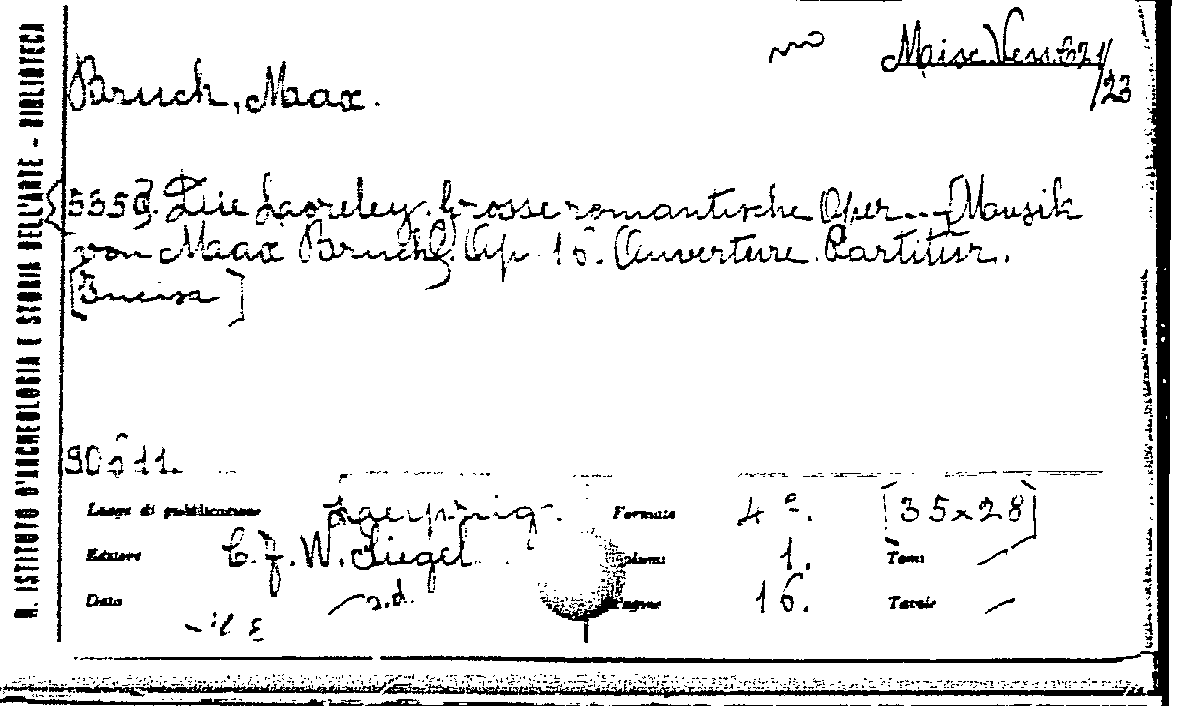 R. ISTITUTO D'ARCHEOLOGIA E STORIA DELL'ARTE - BIBLIOTECA
Misc. Vess. 621/23
Bruch, Max.
Die Loreley. Grosse romantische Oper... [Musik
von Max Bruch]. Op. 16. Ouverture. Partitur.
[Incisa]
90611.
Luogo di pubblicazione Leipzig. Formato 4°. [35x28]
Editore C. F. W. Siegel Volumi 1. Tomi —
Data — s.d. Pagine 16. Tavole —